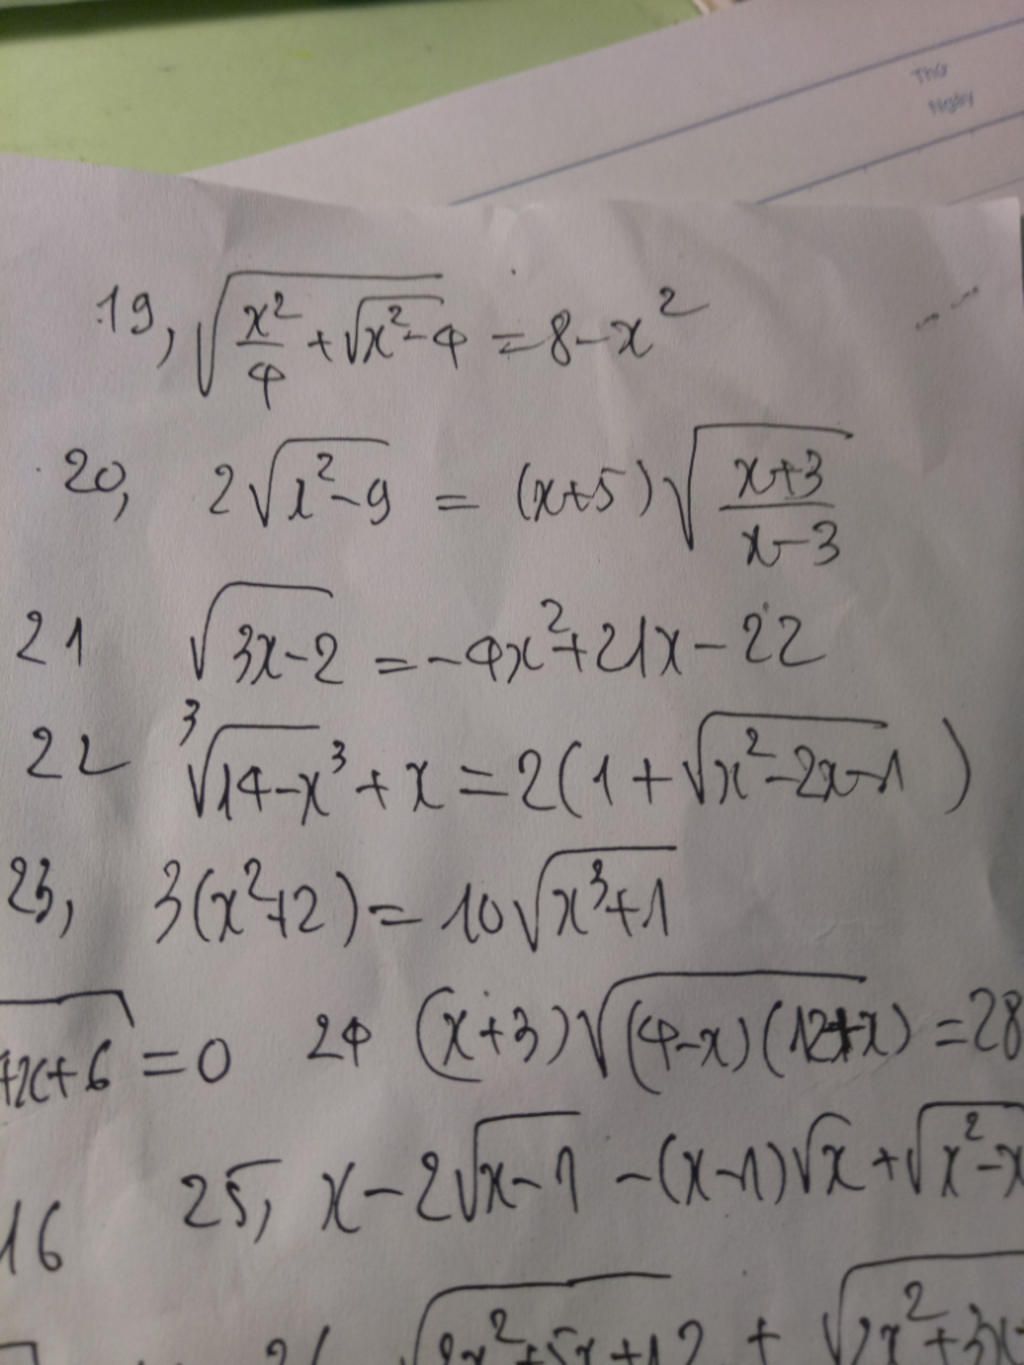 Thứ
Ngày
19, √(x²/4 + √(x²-4)) = 8-x²
20, 2√(x²-9) = (x+5)√((x+3)/(x-3))
21 √(3x-2) = -4x²+21x-22
22 ³√(14-x³) + x = 2(1+√(x²-2x-1))
23, 3(x²+2) = 10√(x³+1)
+x+6 = 0 24 (x+3)√((4-x)(12+x)) = 28
25, x-2√(x-1) -(x-1)√x + √(x²-x
16
√(2x²+5x+12 + √(2x²+3x+